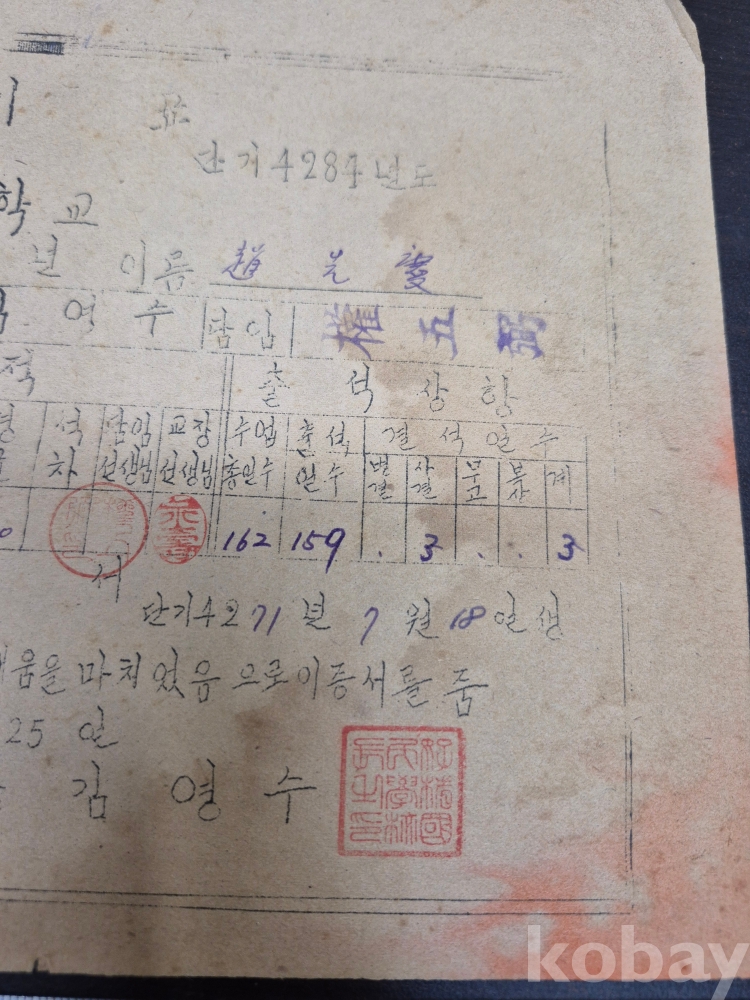 표
단기 4284년도
학교
년 이름 趙 光 慶
영수 담임 權五弼
적 출석상항
석차 담임선생님 교장선생님 수업총일수 출석일수 결석일수 병결 사결 무고 복사 계
162 159 . 3 . . 3
서
단기4271년 7월 18일생
배움을 마치었음으로이증서를 줌
25 일
김 영 수
kobay